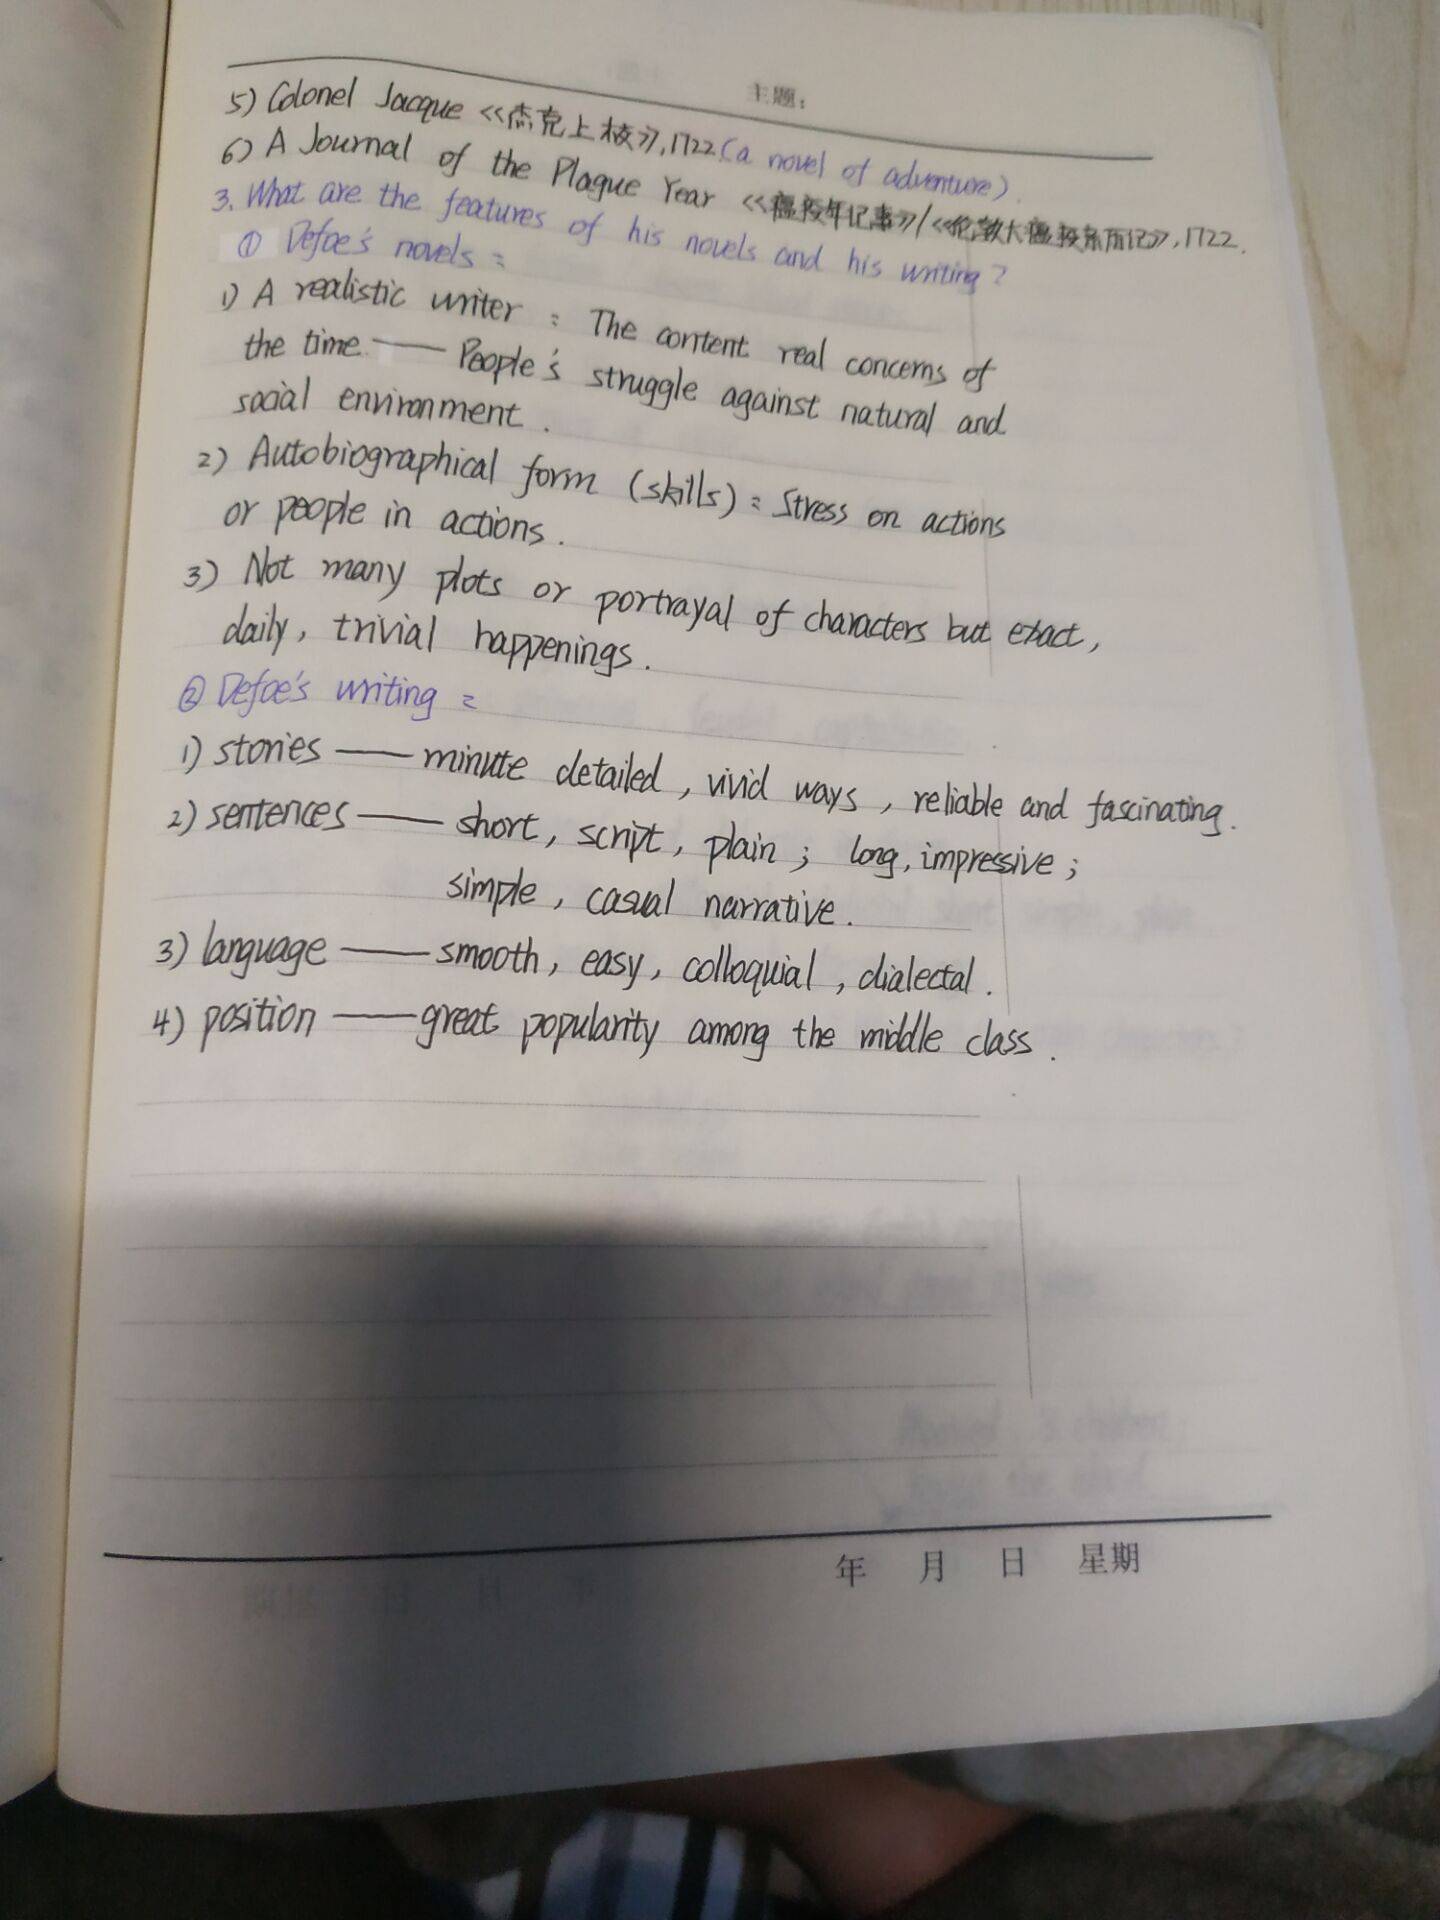 主题:
5) Colonel Jacque <<杰克上校>>, 1722 (a novel of adventure).
6) A Journal of the Plague Year <<瘟疫年记事>>/<<伦敦大瘟疫亲历记>>, 1722.
3. What are the features of his novels and his writing?
① Defoe's novels:
1) A realistic writer: The content real concerns of
the time —— People's struggle against natural and
social environment.
2) Autobiographical form (skills): Stress on actions
or people in actions.
3) Not many plots or portrayal of characters but exact,
daily, trivial happenings.
② Defoe's writing:
1) stories —— minute detailed, vivid ways, reliable and fascinating.
2) sentences —— short, script, plain; long, impressive;
simple, casual narrative.
3) language —— smooth, easy, colloquial, dialectal.
4) position —— great popularity among the middle class.
年 月 日 星期